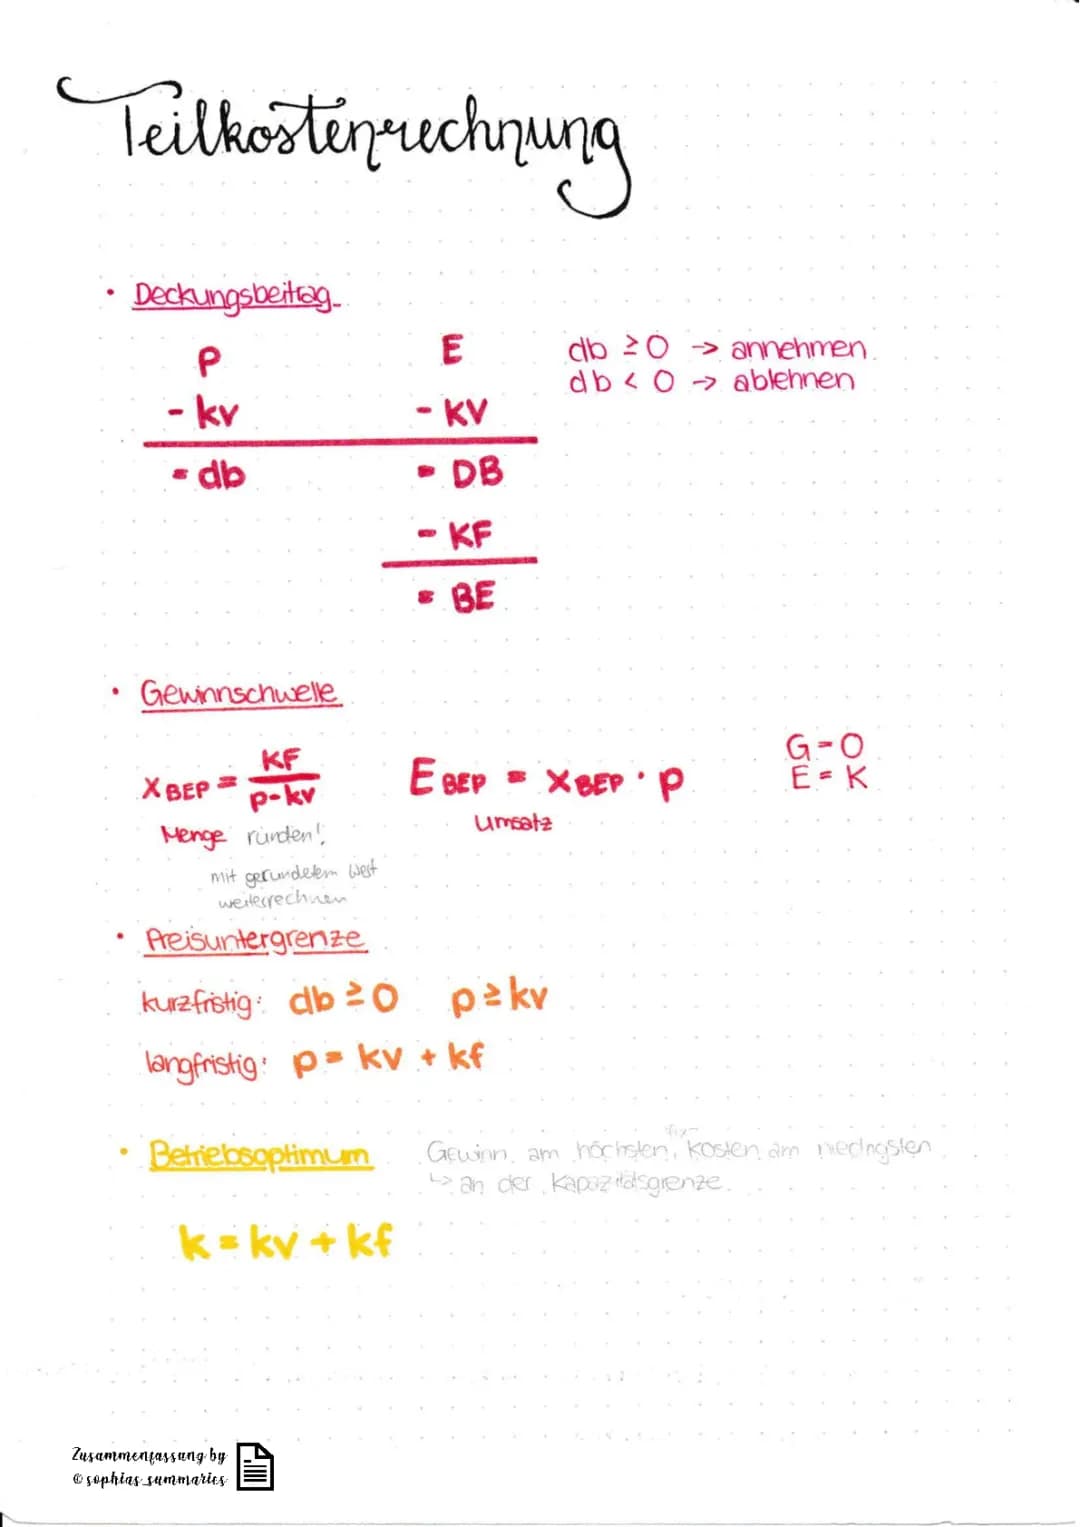 Teilkostenrechnung
• Deckungsbeitrag
P E db ≥ 0 → annehmen
- kv - KV db < 0 → ablehnen
= db = DB
- KF
= BE
• Gewinnschwelle
x BEP = KF / p - kv E BEP = x BEP · p G = 0
E = K
Menge runden! Umsatz
mit gerundetem Wert
weiterrechnen
• Preisuntergrenze
kurzfristig: db ≥ 0 p ≥ kv
langfristig: p = kv + kf
• Betriebsoptimum Gewinn am höchsten, fix- Kosten am niedrigsten
↳ an der Kapazitätsgrenze
k = kv + kf
Zusammenfassung by
@sophias_summaries